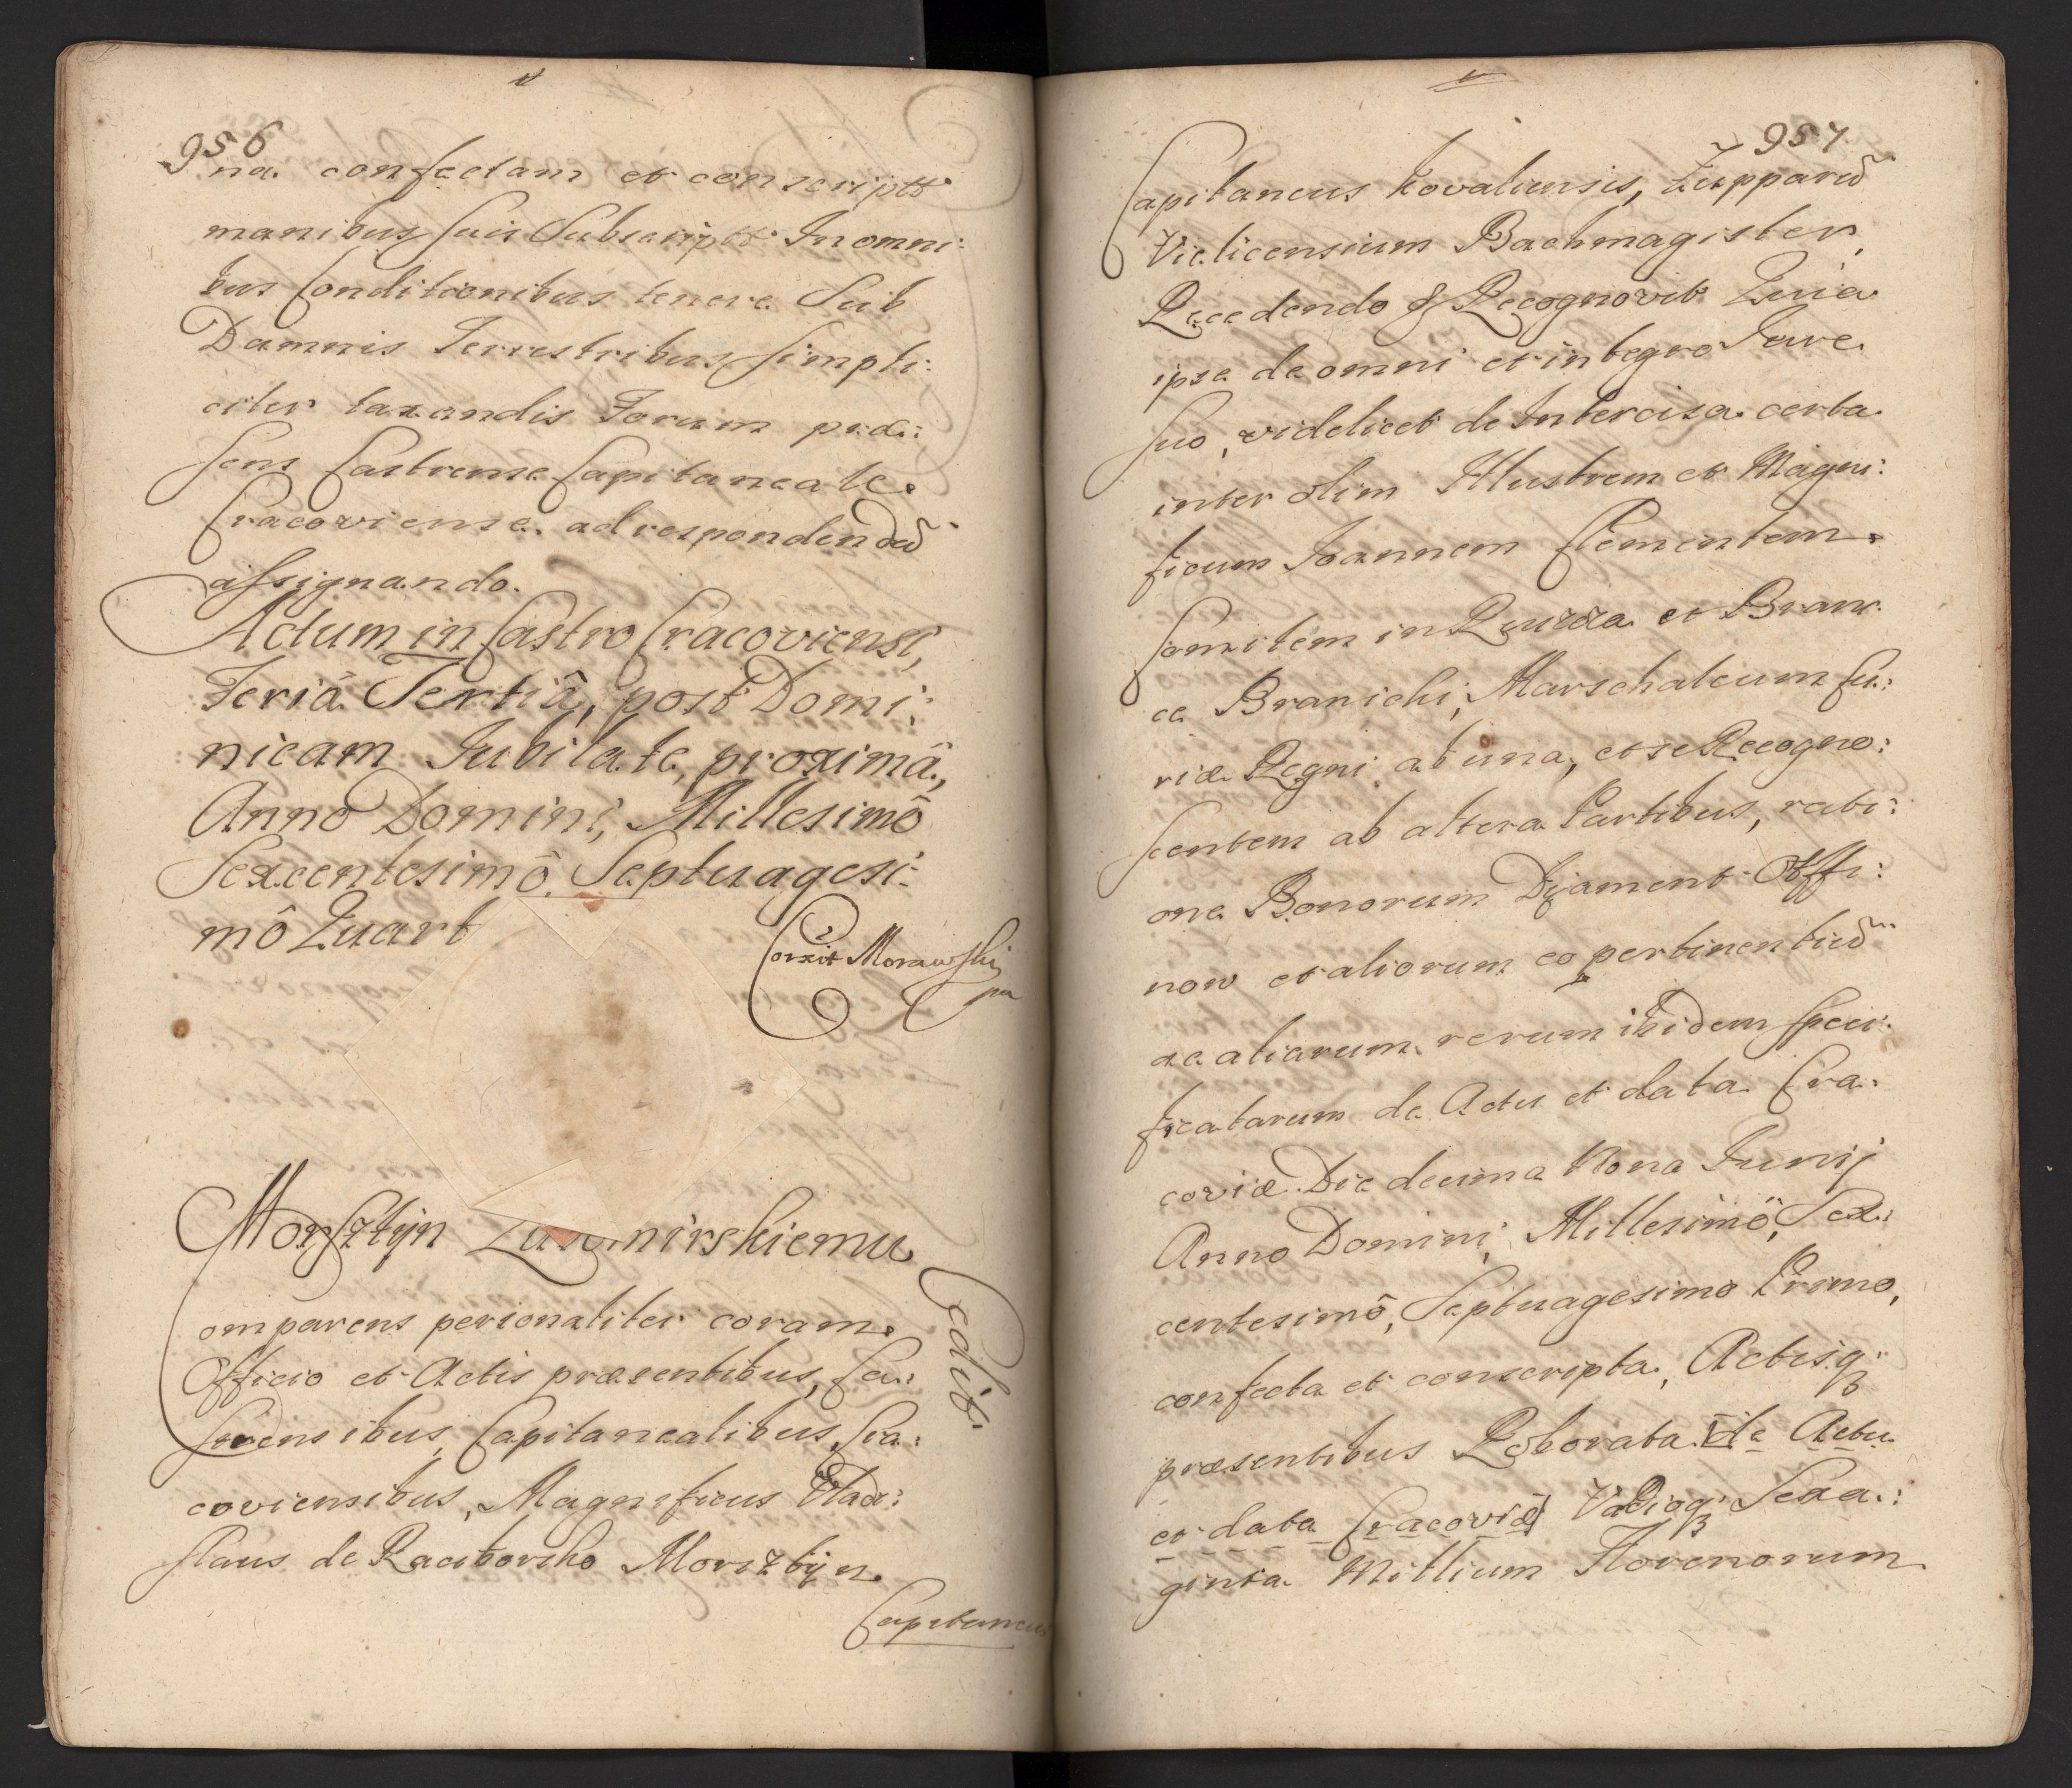 956
na confectam et conscriptt
manibus suis Subscriptt In omni:
bus Conditionibus tenere Sub
Damnis Terrestribus simpli:
citer taxandis Forum præ:
sens Castrense Capitaneale
Cracoviense ad respondendũ
assignando.
Actum in Castro Cracoviensi,
Feriâ Tertiâ, post Domi:
nicam Jubilate, proximâ,
Anno Domini, Millesimô
Sexcentesimô, Septuagesi:
mô Quart
Corxit Morawski
mp
Morsztyn
omparens personaliter coram
Cedit
Officio et Actis præsentibus, Ca:
strensibus, Capitanealibus, Cra:
coviensibus, Magnificus Vladi:
slaus de Raciborsko Morsztyn
Capitaneus
957
Capitaneus Kovaliensis, Zupparũ
Vieliceensium Bachmagister,
Recedendo & Recognovit Quia
ipse de omni et integro Jure
suo, videlicet de Intercisa certa
inter olim Illustrem et Magni:
ficum Joannem Clementem
Comitem in Ruszcza et Branic
ce Branicki, Marschalcum Cu:
riæ Regni ab una, et se Recogno:
scentem ab altera Partibus, rati:
one Bonorum Dyament Offi:
now et aliorum eo pertinentiũ
ac aliarum rerum ibidem speci:
ficatarum de Actu et data Cra:
coviæ Die decima Nona Junij
Anno Domini, Millesimô, Sex:
centesimô, Septuagesimo Primo,
confecta et conscripta, Actisq;
præsentibus Roborata de Actu
et data Cracoviæ Vadioq; Sexa:
ginta Millium Florenorum